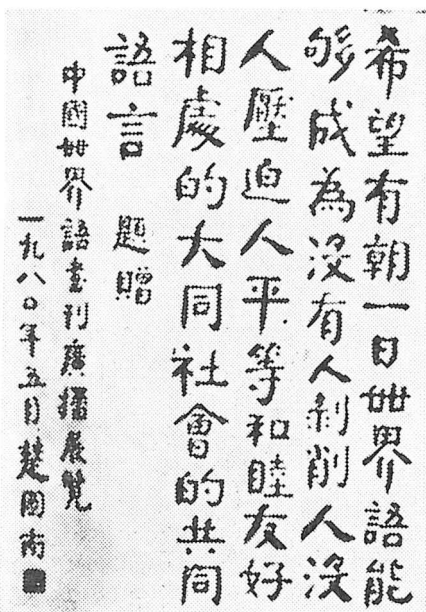 希望有朝一日世界語能
够成為没有人剥削人没
人壓迫人平等和睦友好
相處的大同社會的共同
語言 題贈
中國世界語書刊廣播展覽
一九八〇年五月楚圖南